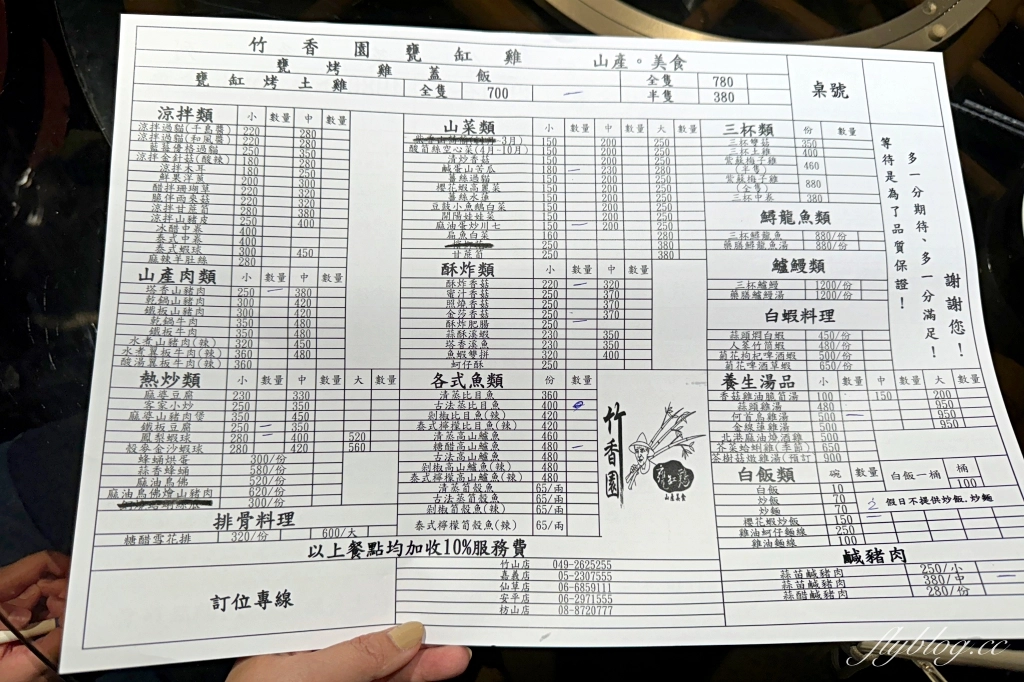 竹香園甕缸雞 山產。美食
甕烤雞蓋飯
甕缸烤土雞 全隻 700 一 全隻 780
半隻 380
桌號
多一分期待、多一分滿足！
等待是為了品質保證！
謝謝您！
涼拌類 小 數量 中 數量
涼拌過貓(千島醬) 220 280
涼拌過貓(和風醬) 220 280
藍莓優格過貓 250
涼拌金針菇(酸辣) 180 280
涼拌木耳 180 250
鮮果洋蔥 200 300
醋拌珊瑚草 220 320
脆伴雨來菇 220 320
涼拌甘蔗筍 280 380
涼拌山豬皮 250 400
冰醋中卷 400
泰式中卷 400
泰式蝦球 300 450
麻辣羊肚絲 280
山產肉類 小 數量 中 數量
塔香山豬肉 250 一 380
乾鍋山豬肉 300 420
鐵板山豬肉 300 420
乾鍋牛肉 350 480
鐵板牛肉 350 480
水煮山豬肉(辣) 320 450
水煮翼板牛肉(辣) 360 480
酸湯翼板牛肉(辣) 360
熱炒類 小 數量 中 數量 大 數量
麻婆豆腐 230 330
客家小炒 250 350
麻婆山豬肉煲 350 450
鐵板豆腐 250 一 350
鳳梨蝦球 280 一 400 520
穀麥金沙蝦球 280 420 560
蜂蛹烘蛋 300/份
蒜香蜂蛹 580/份
麻油鳥佛 520/份
麻油鳥佛燴山豬肉 620/份
300/份
排骨料理
糖醋雪花排 320/份 600/大
山菜類 小 數量 中 數量 大 數量
3月) 150 200 250
酸筍絲空心菜(4月-10月) 150 200 250
清炒香菇 150 200 250
鹹蛋山苦瓜 180 一 230 280
薑絲過貓 150 200 250
櫻花蝦高麗菜 150 200 250
薑絲水蓮 150 200 250
豆鼓小魚鵝白菜 150 200 250
開陽娃娃菜 150 200 250
麻油蛋炒川七 150 一 200 250
扁魚白菜 160 280
250 380
甘蔗筍 250 380
酥炸類 小 數量 中 數量
酥炸香菇 220 一 320
蜜汁香菇 250 370
照燒香菇 250 370
金莎香菇 250 370
酥炸肥腸 250 一
蒜酥溪蝦 230 350
塔香溪魚 230 350
魚蝦雙拼 320 400
蚵仔酥 250
各式魚類 份 數量
清蒸比目魚 360
古法蒸比目魚 400
剁椒比目魚(辣) 420
泰式檸檬比目魚(辣) 420
清蒸高山鱸魚 460
糖醋高山鱸魚 480 一
古法高山鱸魚 480
剁椒高山鱸魚(辣) 480
泰式檸檬高山鱸魚(辣) 480
清蒸筍殼魚 65/兩
古法蒸筍殼魚 65/兩
剁椒筍殼魚(辣) 65/兩
泰式檸檬筍殼魚(辣) 65/兩
三杯類 份 數量
三杯雙菇 350
三杯土雞 400
紫蘇梅子雞(半隻) 460
紫蘇梅子雞(全隻) 880
三杯中卷
鱘龍魚類
三杯鱘龍魚 880/份
藥膳鱘龍魚湯 880/份
鱸鰻類
三杯鱸鰻 1200/份
藥膳鱸鰻湯 1200/份
白蝦料理
蒜頭燜白蝦 450/份
人蔘竹筒蝦 480/份
菊花枸杞啤酒蝦 500/份
菊花啤酒草蝦 650/份
竹香園
甕缸雞
山產美食
養生湯品 小 數量 中 數量 大 數量
香菇雞油脆筍湯 100 150 200
蒜頭雞湯 480 950
何首烏雞湯 500 一 950
金線蓮雞湯 500 950
北港麻油燒酒雞 500
芥菜蛤蜊雞(季節) 650
茶樹菇燉雞湯(預訂) 900
白飯類 碗 數量 白飯一桶 桶 100
白飯 10
炒飯 70 2 假日不提供炒飯.炒麵
炒麵 70
櫻花蝦炒飯 150
雞油蚵仔麵線 250
雞油麵線 100
鹹豬肉
蒜苗鹹豬肉 250/小
蒜苗鹹豬肉 380/中 一
蒜醋鹹豬肉 280/份
以上餐點均加收10%服務費
訂位專線
竹山店 049-2625255
嘉義店 05-2307555
仙草店 06-6859111
安平店 06-2971555
枋山店 08-8720777
flyblog.cc